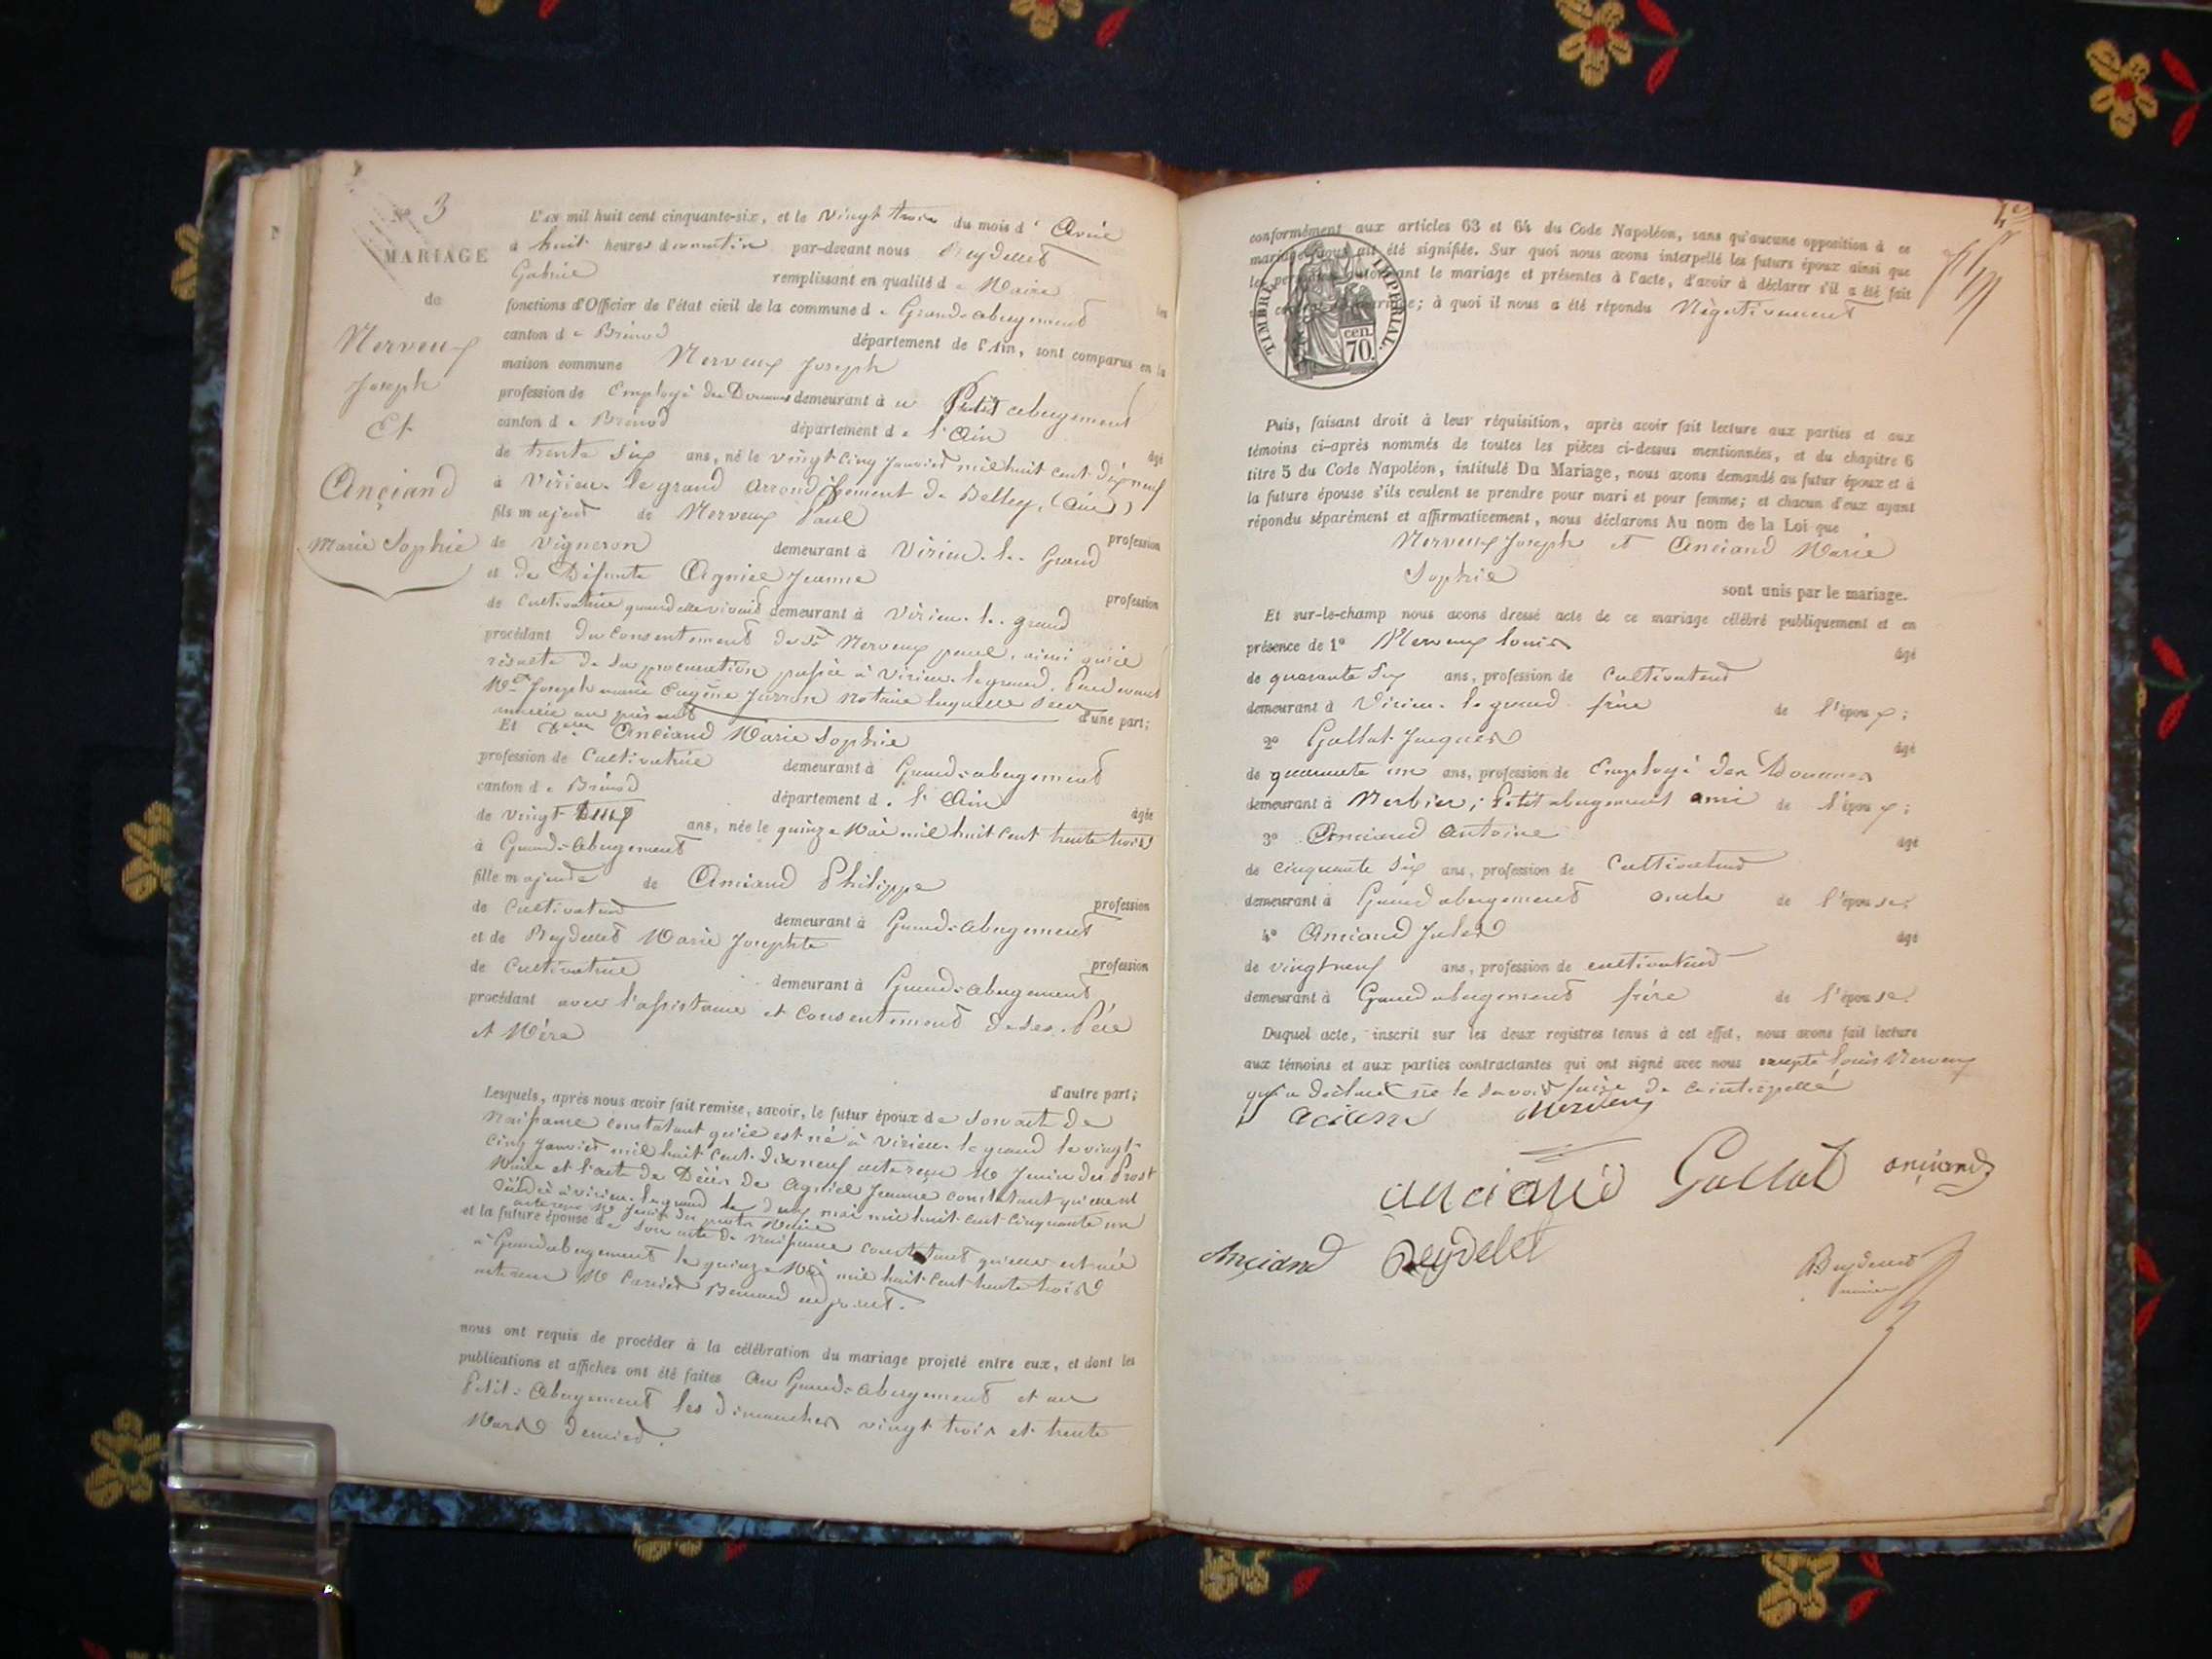 N° 3
MARIAGE
de
Nerveux
Joseph
Et
Anciand
Marie Sophie
L'an mil huit cent cinquante-six, et le vingt trois du mois d' Avril
à huit heures du matin par-devant nous Reydellet
Gabriel remplissant en qualité de Maire les
fonctions d'Officier de l'état civil de la commune de Grand-abergement
canton de Brénod département de l'Ain, sont comparus en la
maison commune Nerveux Joseph
profession de Employé des Douanes demeurant à au Petit abergement
canton de Brénod département de l'Ain âgé
de trente six ans, né le vingt cinq Janvier mil huit cent dix neuf
à Virieu-le-grand arrondissement de Belley, (Ain)
fils majeur de Nerveux Paul profession
de Vigneron demeurant à Virieu-le-Grand
et de Défunte Agniel Jeanne profession
de Cultivatrice quand elle vivait demeurant à Virieu-le-grand
procédant du consentement du Sr Nerveux paul, ainsi qu'il
résulte de sa procuration passée à Virieu-le-grand. Pardevant
Me Joseph marie Eugène notaire laquelle sera
annexée au présent d'une part;
Et Anciand Marie Sophie
profession de Cultivatrice demeurant à Grand-abergement
canton de Brénod département de l'Ain âgée
de vingt-Deux ans, née le quinze Mai mil huit cent trente trois
à Grand-abergement
fille majeure de Anciand Philippe profession
de Cultivateur demeurant à Grand-abergement
et de Reydellet Marie Josephte profession
de Cultivatrice demeurant à Grand-abergement
procédant avec l'assistance et Consentement de ses Père
et Mère
d'autre part;
Lesquels, après nous avoir fait remise, savoir, le futur époux de son acte de
Naissance constatant qu'il est né à Virieu-le-grand le vingt-
cinq Janvier mil huit Cent-dix neuf acte reçu Mr Prost
Maire et l'acte de Décès de Agniel Jeanne constatant qu'elle est
décédée à virieu-le-grand le deux mai mil huit cent cinquante un
acte reçu Mr Maire
et la future épouse de son acte de Naissance constatant qu'elle est née
à Grand abergement le quinze Mai mil huit Cent trente trois
acte reçu Mr Carrier Bernard adjoint.
nous ont requis de procéder à la célébration du mariage projeté entre eux, et dont les
publications et affiches ont été faites Au Grand-abergement et au
Petit-Abergement les dimanches vingt trois et trente
Mars dernier.
conformément aux articles 63 et 64 du Code Napoléon, sans qu'aucune opposition à ce
mariage nous ait été signifiée. Sur quoi nous avons interpellé les futurs époux ainsi que
les personnes autorisant le mariage et présentes à l'acte, d'avoir à déclarer s'il a été fait
un contrat de mariage; à quoi il nous a été répondu Négativement
TIMBRE IMPÉRIAL.
cen.
70.
Puis, faisant droit à leur réquisition, après avoir fait lecture aux parties et aux
témoins ci-après nommés de toutes les pièces ci-dessus mentionnées, et du chapitre 6
titre 5 du Code Napoléon, intitulé Du Mariage, nous avons demandé au futur époux et à
la future épouse s'ils veulent se prendre pour mari et pour femme; et chacun d'eux ayant
répondu séparément et affirmativement, nous déclarons Au nom de la Loi que
Nerveux Joseph et Anciand Marie
Sophie sont unis par le mariage.
Et sur-le-champ nous avons dressé acte de ce mariage célébré publiquement et en
présence de 1° Nerveux louis âgé
de quarante Six ans, profession de Cultivateur
demeurant à Virieu-le-grand frère de l'époux;
2° Gallat Jacques âgé
de quarante un ans, profession de Employé des Douanes
demeurant à Petit abergement ami de l'époux;
3° Anciand Antoine âgé
de cinquante Six ans, profession de Cultivateur
demeurant à Grand abergement oncle de l'épouse;
4° Anciand Jules âgé
de vingt neuf ans, profession de cultivateur
demeurant à Grand abergement frère de l'épouse.
Duquel acte, inscrit sur les deux registres tenus à cet effet, nous avons fait lecture
aux témoins et aux parties contractantes qui ont signé avec nous excepté louis Nerveux
qui a déclaré ne le savoir faire de ce interpellé
Nerveux
anciand Gallat anciand
Anciand Reydelet
Reydellet
maire